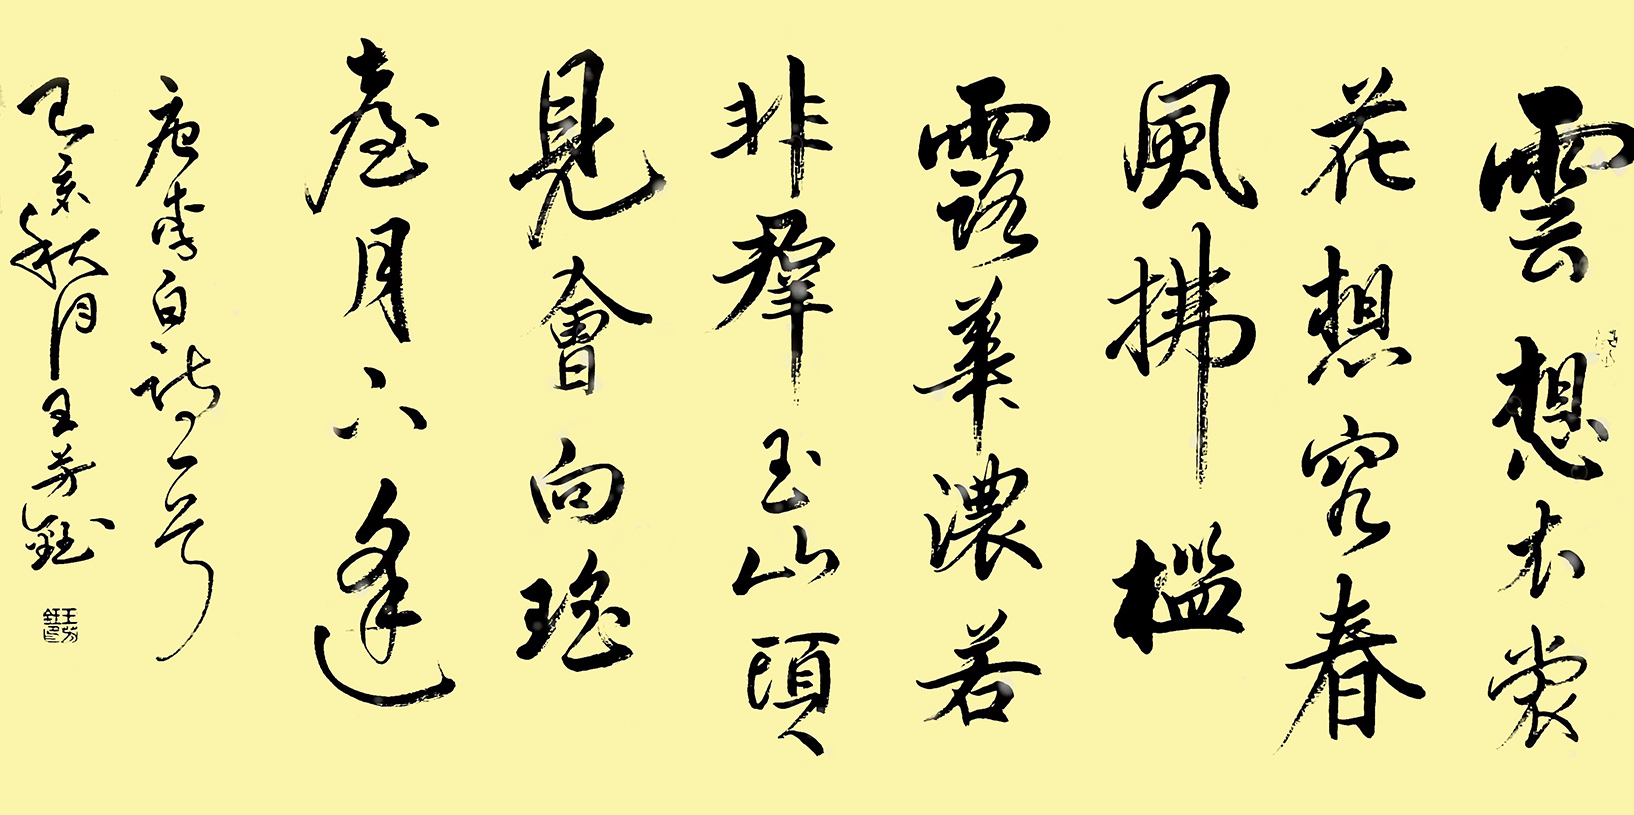 雲想衣裳
花想容春
風拂檻
露華濃若
非羣玉山頭
見會向瑤
臺月下逢
唐李白詩一首
己亥秋月王芳鈺
王芳鈺印